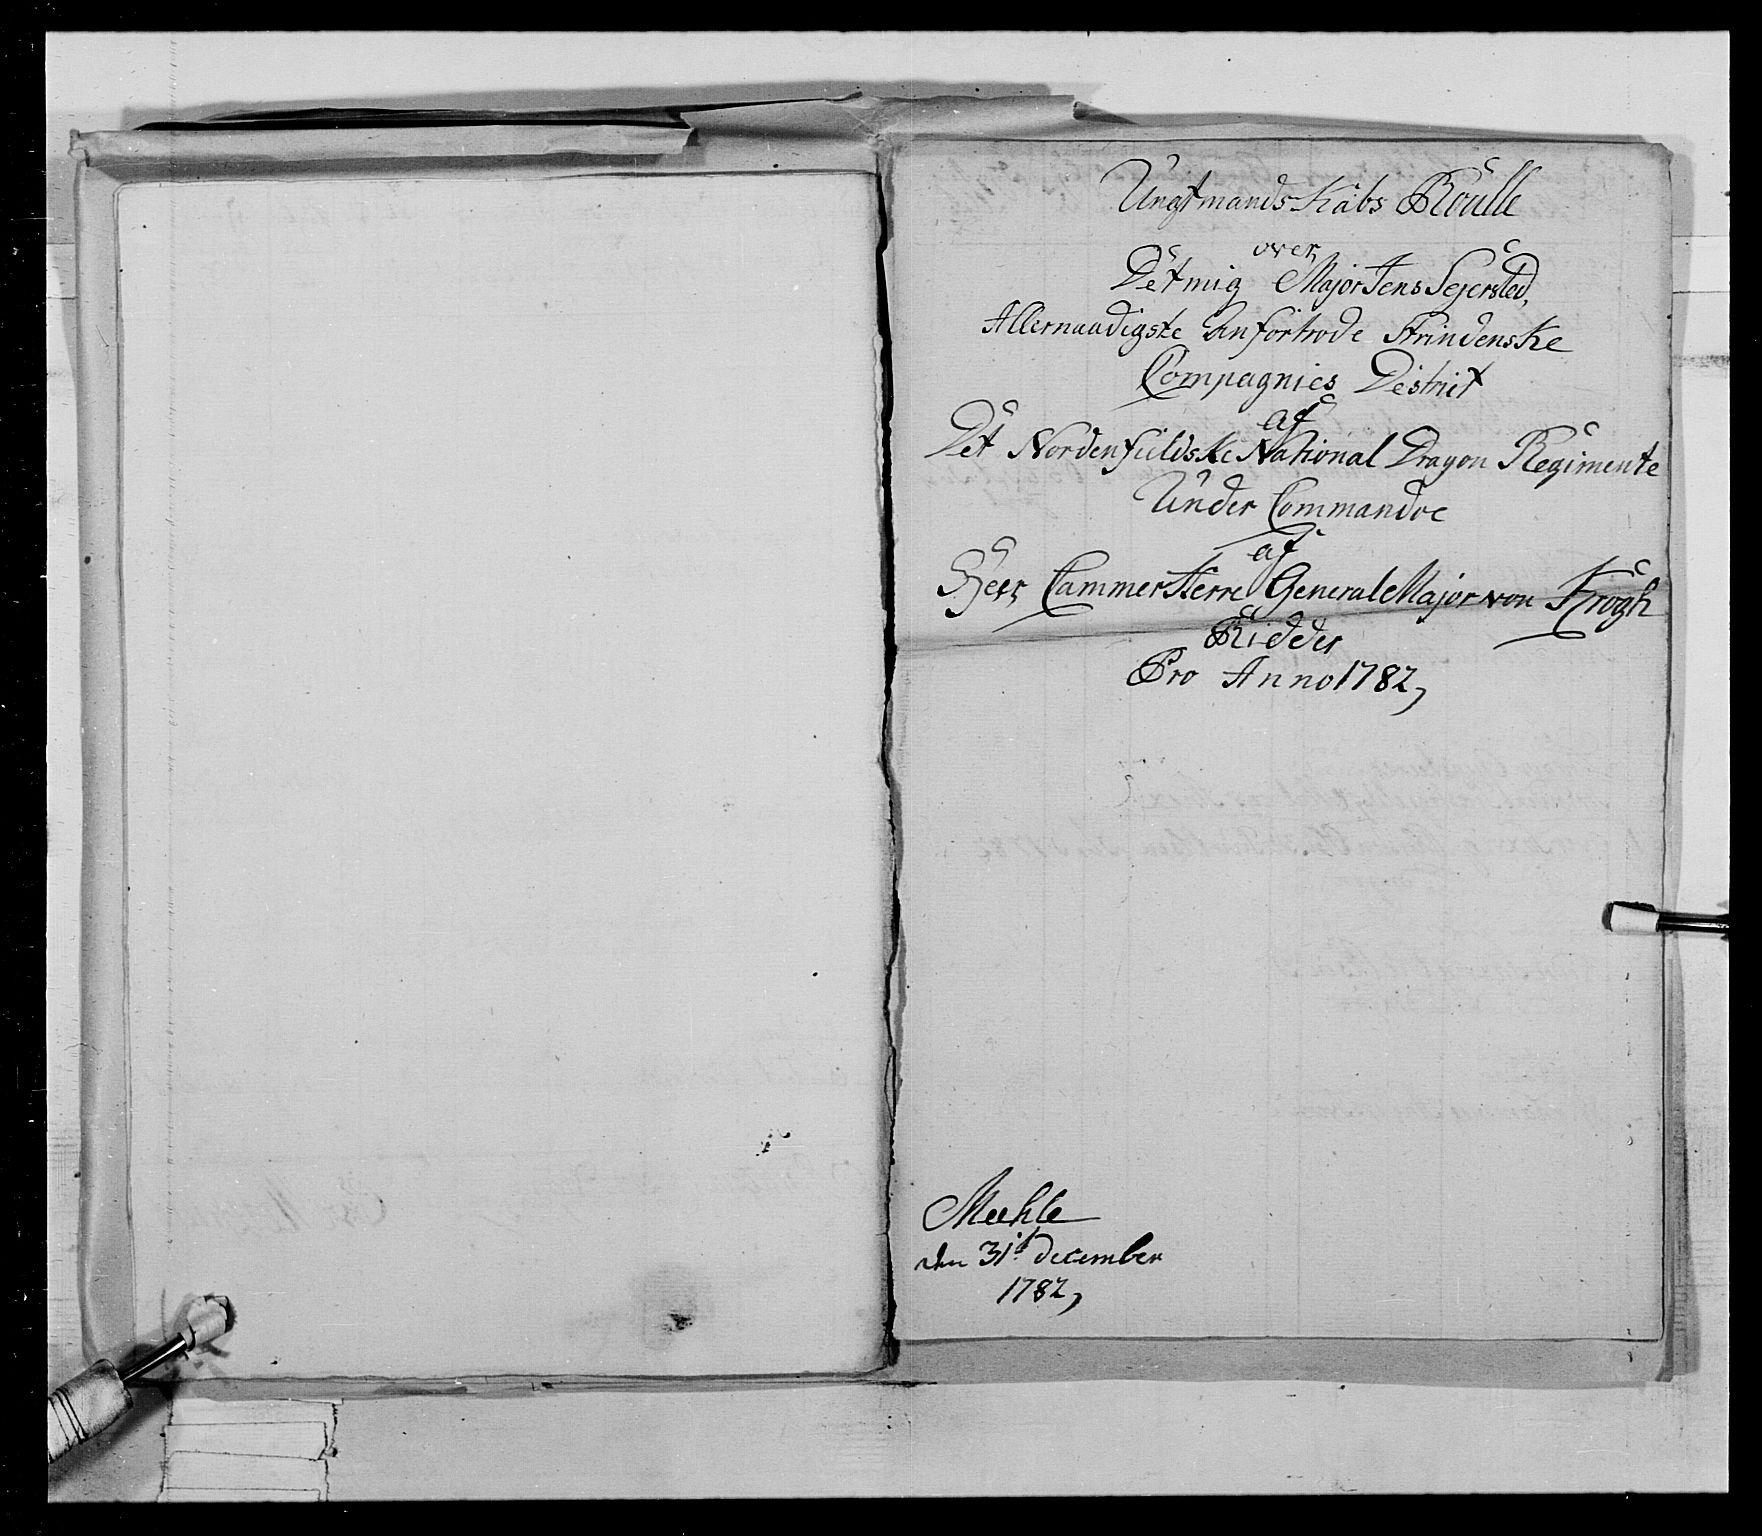 Ungtmandskabs Roulle
over
Det mig Major Jens Sejersted,
Allernaadigste Anfortrode Strindenske
Compagnies District
af
Det Nordenfieldske National Dragon Regimente
Under Commandoe
af
Herr CammerHerre GeneralMajor von Krogh
Ridder
Pro Anno 1782,
Meehle
den 31t december
1782,